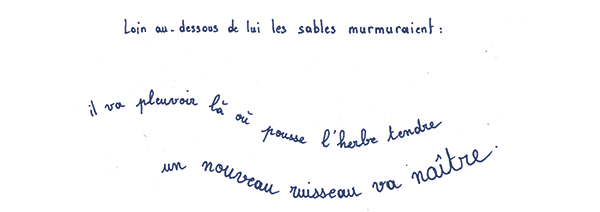 Loin au-dessous de lui les sables murmuraient :
il va pleuvoir là où pousse l'herbe tendre
un nouveau ruisseau va naître.